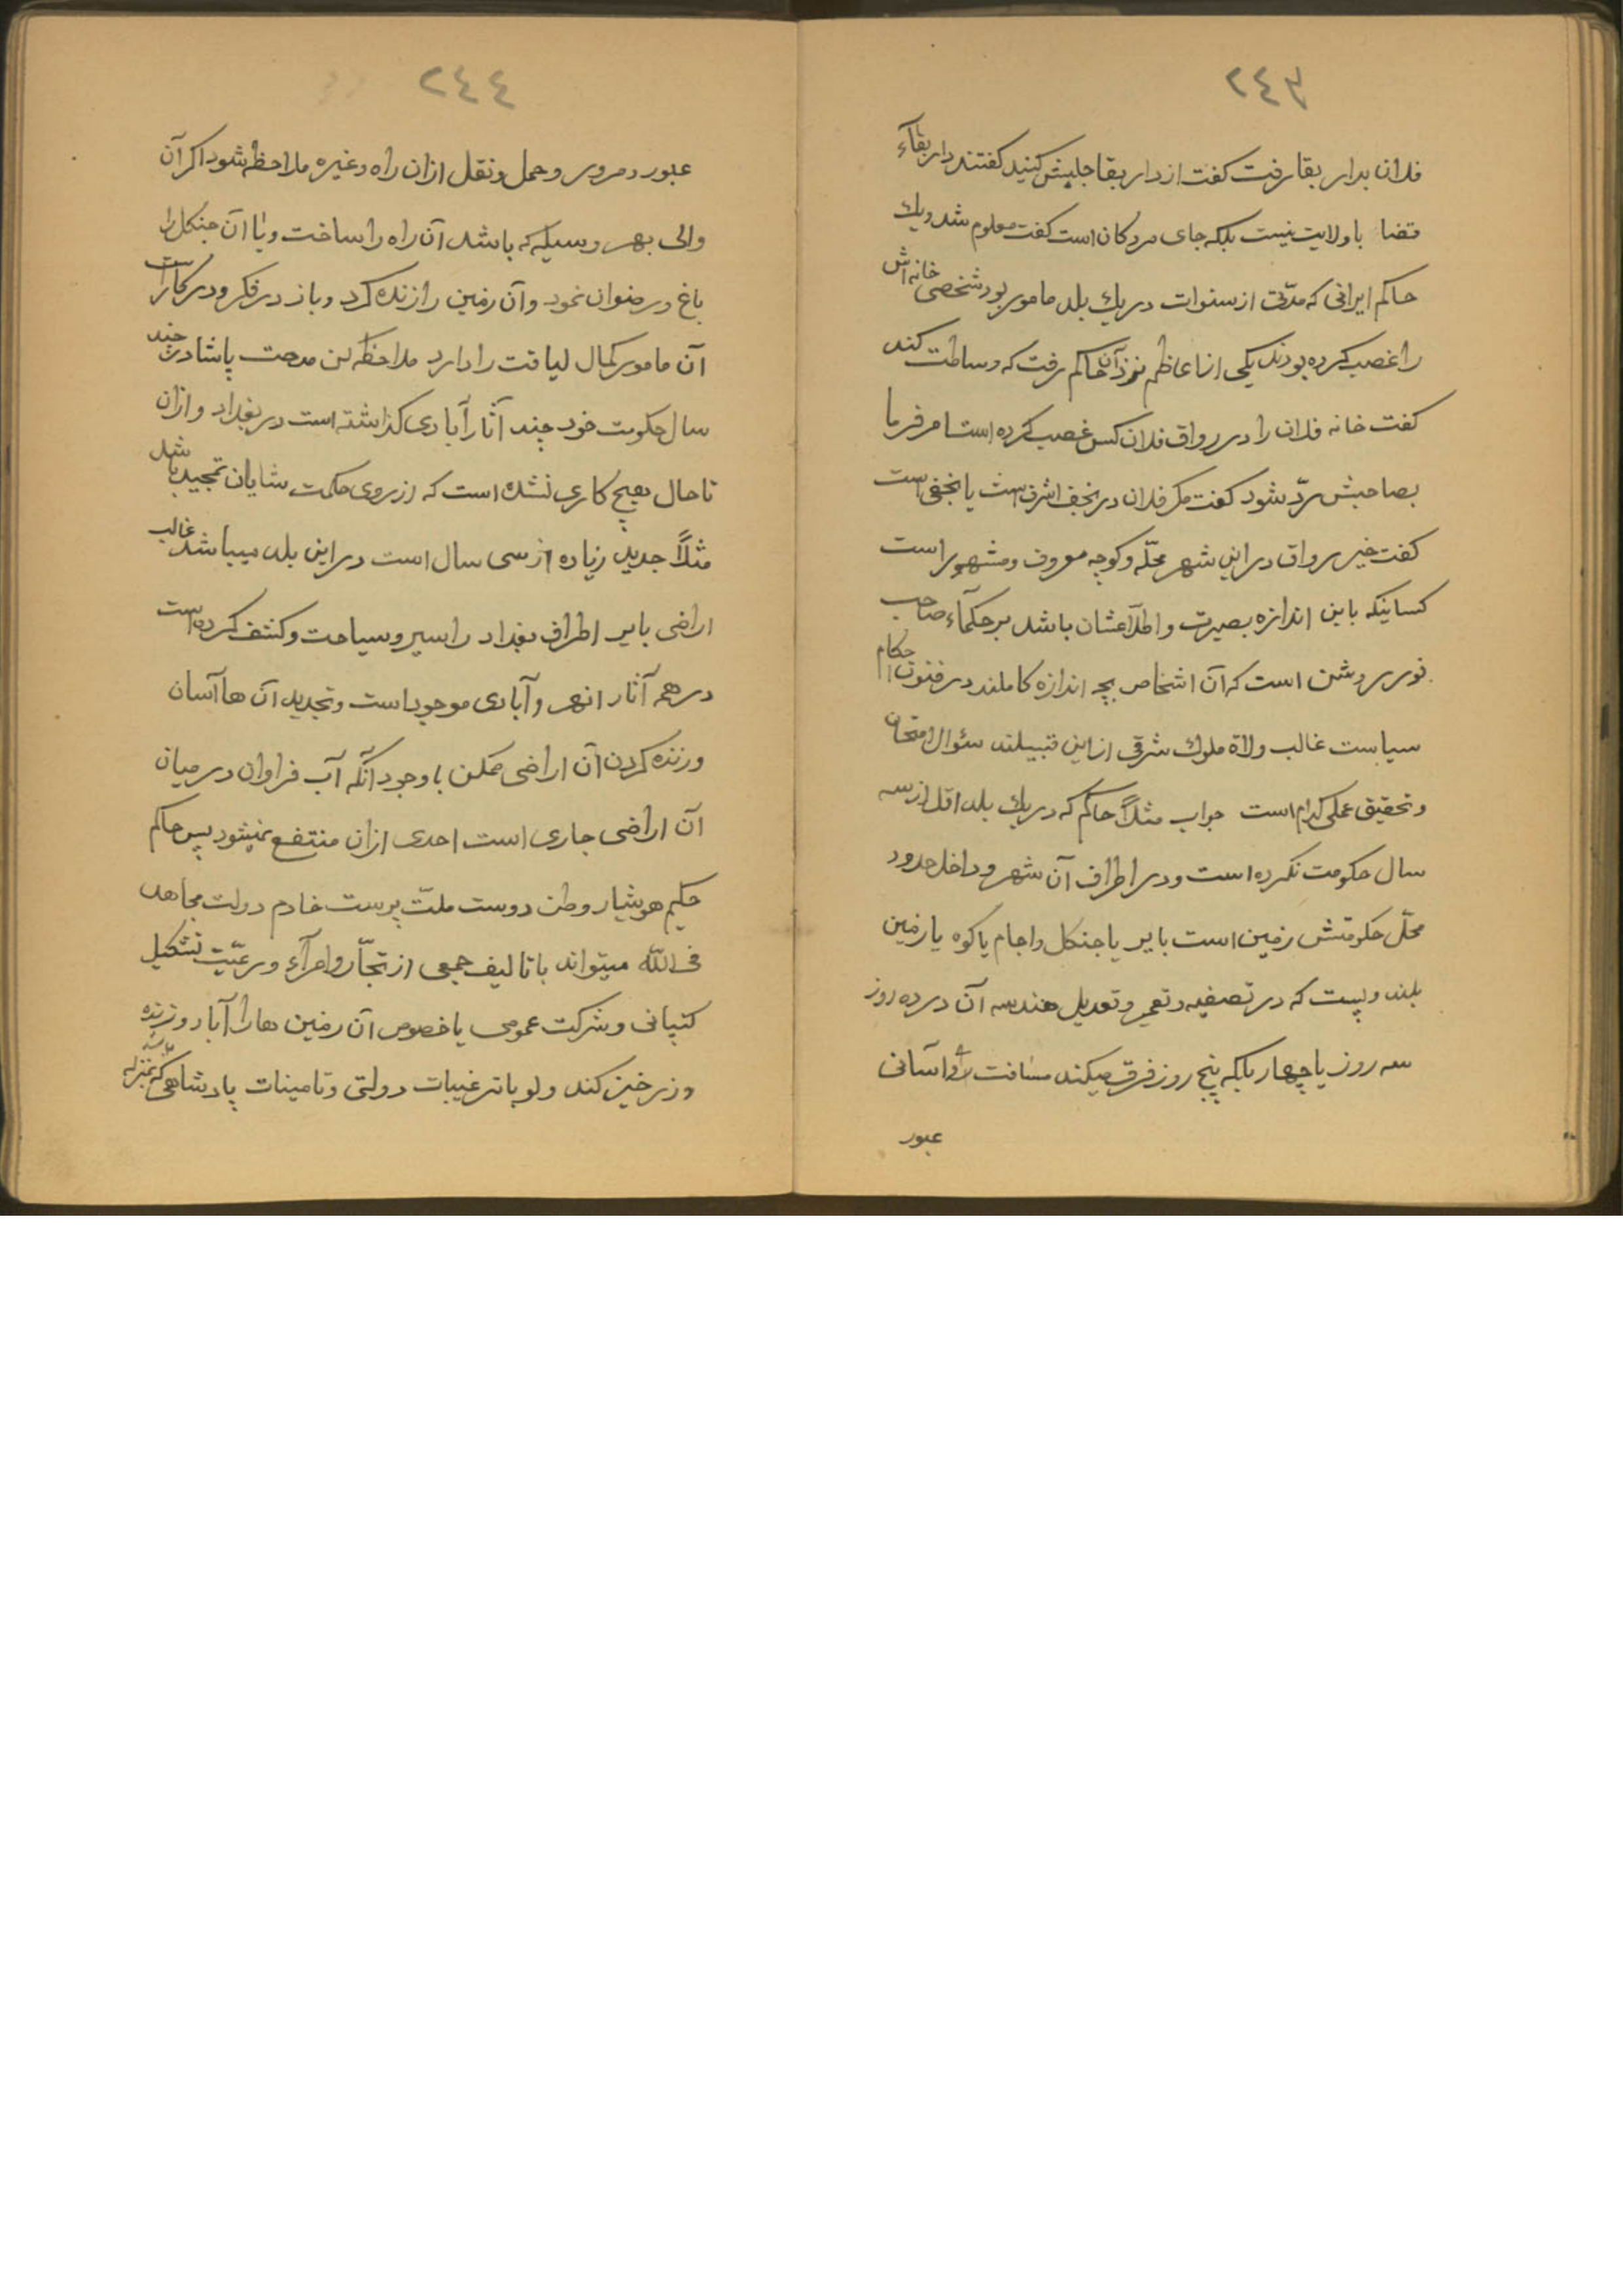 ٢٤٣
فلان بدار بقا رفت کفت از دار بقا جلبش کنید کفتند دار بقآء
قضا یا ولایت نیست بلکه جای مردکان است کفت معلوم شد ویك
حاکم ایرانی که مدّتی از سنوات در یك بلد مامور بود شخصی خانه اش
را غصب کرده بودند یکی از اعاظم نزد آن حاکم رفت که وساطت کند
کفت خانه فلان را در رواق فلان کس غصب کرده است امر فرما
بصاحبش ردّ شود کفت مکر فلان در نجف اشرف است یا نجفی است
کفت خیر رواق در این شهر محلّه وکوچه معروف ومشهور است
کسانیکه باین اندازه بصیرت واطلاعشان باشد بر حکمآء صاحب
نور روشن است که آن اشخاص بچه اندازه کاملند در فنون احکام
سیاست غالب ولاة ملوك شرقی از این قبیلند سئوال امتحان
وتحقیق عملی کدام است جواب مثلاً حاکم که در یك بلد اقل از سه
سال حکومت نکرده است ودر اطراف آن شهر وداخل حدود
محلّ حکومتش زمین است بایر یا جنکل واجام یا کوه یا زمین
بلند وپست که در تصفیه وتعمیر وتعدیل هندسه آن در ده روز
سه روز یا چهار بلکه پنج روز فرق میکند مسافت راه واسانی
عبور
٢٤٤
عبور ومرور وحمل ونقل ازان راه وغیره ملاحظه شود اکر آن
والی بهر وسیله که باشد آن راه را ساخت ویا آن جنکل را
باغ ورضوان نمود وآن زمین را زنده کرد وباز در فکر ودر کار است
آن مامور کمال لیاقت را دارد ملاحظه کن مدحت پاشا در چند
سال حکومت خود چند آثار آبادی کذاشته است در بغداد وازان
تا حال هیچ کاری نشده است که از روی حکمت شایان تمجید باشد
مثلاً جدید زیاده از سی سال است در این بلد میباشد غالب
اراضی بایر اطراف بغداد را سیر وسیاحت وکشف کرده است
در همه آثار انهر وآبادی موجود است وتجدید آن ها آسان
وزنده کردن آن اراضی ممکن با وجود آنکه آب فراوان در میان
آن اراضی جاری است احدی ازان منتفع نمیشود پس حاکم
حکیم هوشیار وطن دوست ملّت پرست خادم دولت مجاهد
فی اللّه میتواند با تالیف جمعی از تجّار وامرآء ورعیّت تشکیل
کنپانی وشرکت عمومی یا خصوص آن زمین ها را آباد وزنده
وزرخیز کند ولو با ترغیبات دولتی وتامینات پادشاهی که بمنزله